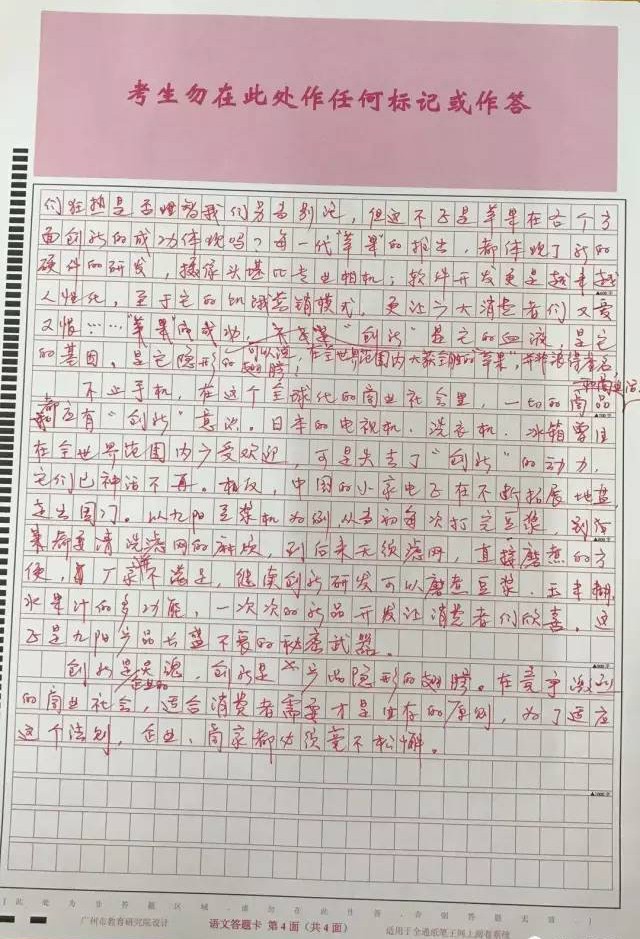 考生勿在此处作任何标记或作答
们狂热是否理智我们另当别论,但这不正是苹果在各个方
面创新的成功体现吗?每一代“苹果”的推出,都体现了新的
硬件的研发,摄像头堪比专业相机;软件开发更是越来越
人性化,至于它的饥饿营销模式,更让广大消费者们又爱
又恨……“苹果”的成功,“创新”是它的血液,是它
的基因,是它隐形的翅膀,可以说,在全世界范围内大获全胜的“苹果”,并非浪得虚名,
不止手机,在这个全球化的商业社会里,一切的商品
都应有“创新”意识。日本的电视机、洗衣机、冰箱曾经
在全世界范围内广受欢迎,可是失去了“创新”的动力,
它们已神话不再。相反,中国的小家电正在不断拓展地盘,
走出国门。以九阳豆浆机为例,从当初每次打完豆浆,
都要清洗滤网的麻烦,到后来无须滤网,直接磨煮的方
便,厂家并不满足,继续创新研发可以磨煮豆浆、玉米糊、
水果汁的多功能,一次次的新品开发让消费者们欣喜,这
正是九阳产品长盛不衰的秘密武器。
创新是企业的灵魂,创新是产品隐形的翅膀。在竞争激烈
的商业社会,适合消费者需要才是生存的原则,为了适应
这个法则,企业、商家都必须毫不松懈。
此处为非答题区域,请勿在此作答,否则答题无效
广州市教育研究院设计
语文答题卡 第4面(共4面)
适用于全通纸笔王网上阅卷系统